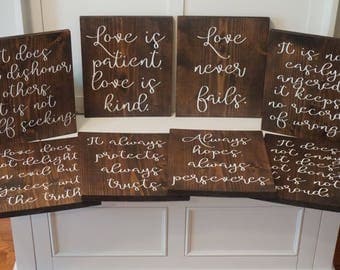 It does
dishonor
others.
it is not
self seeking.
Love is
patient
love is
kind.
Love
never
fails.
It is not
easily
angered
it keeps
no record
of wrong
Love does
not delight
in evil but
rejoices with
the truth
It always
protects
always
trusts.
Always
hopes,
always
perseveres.
It does
envy
boast
is not